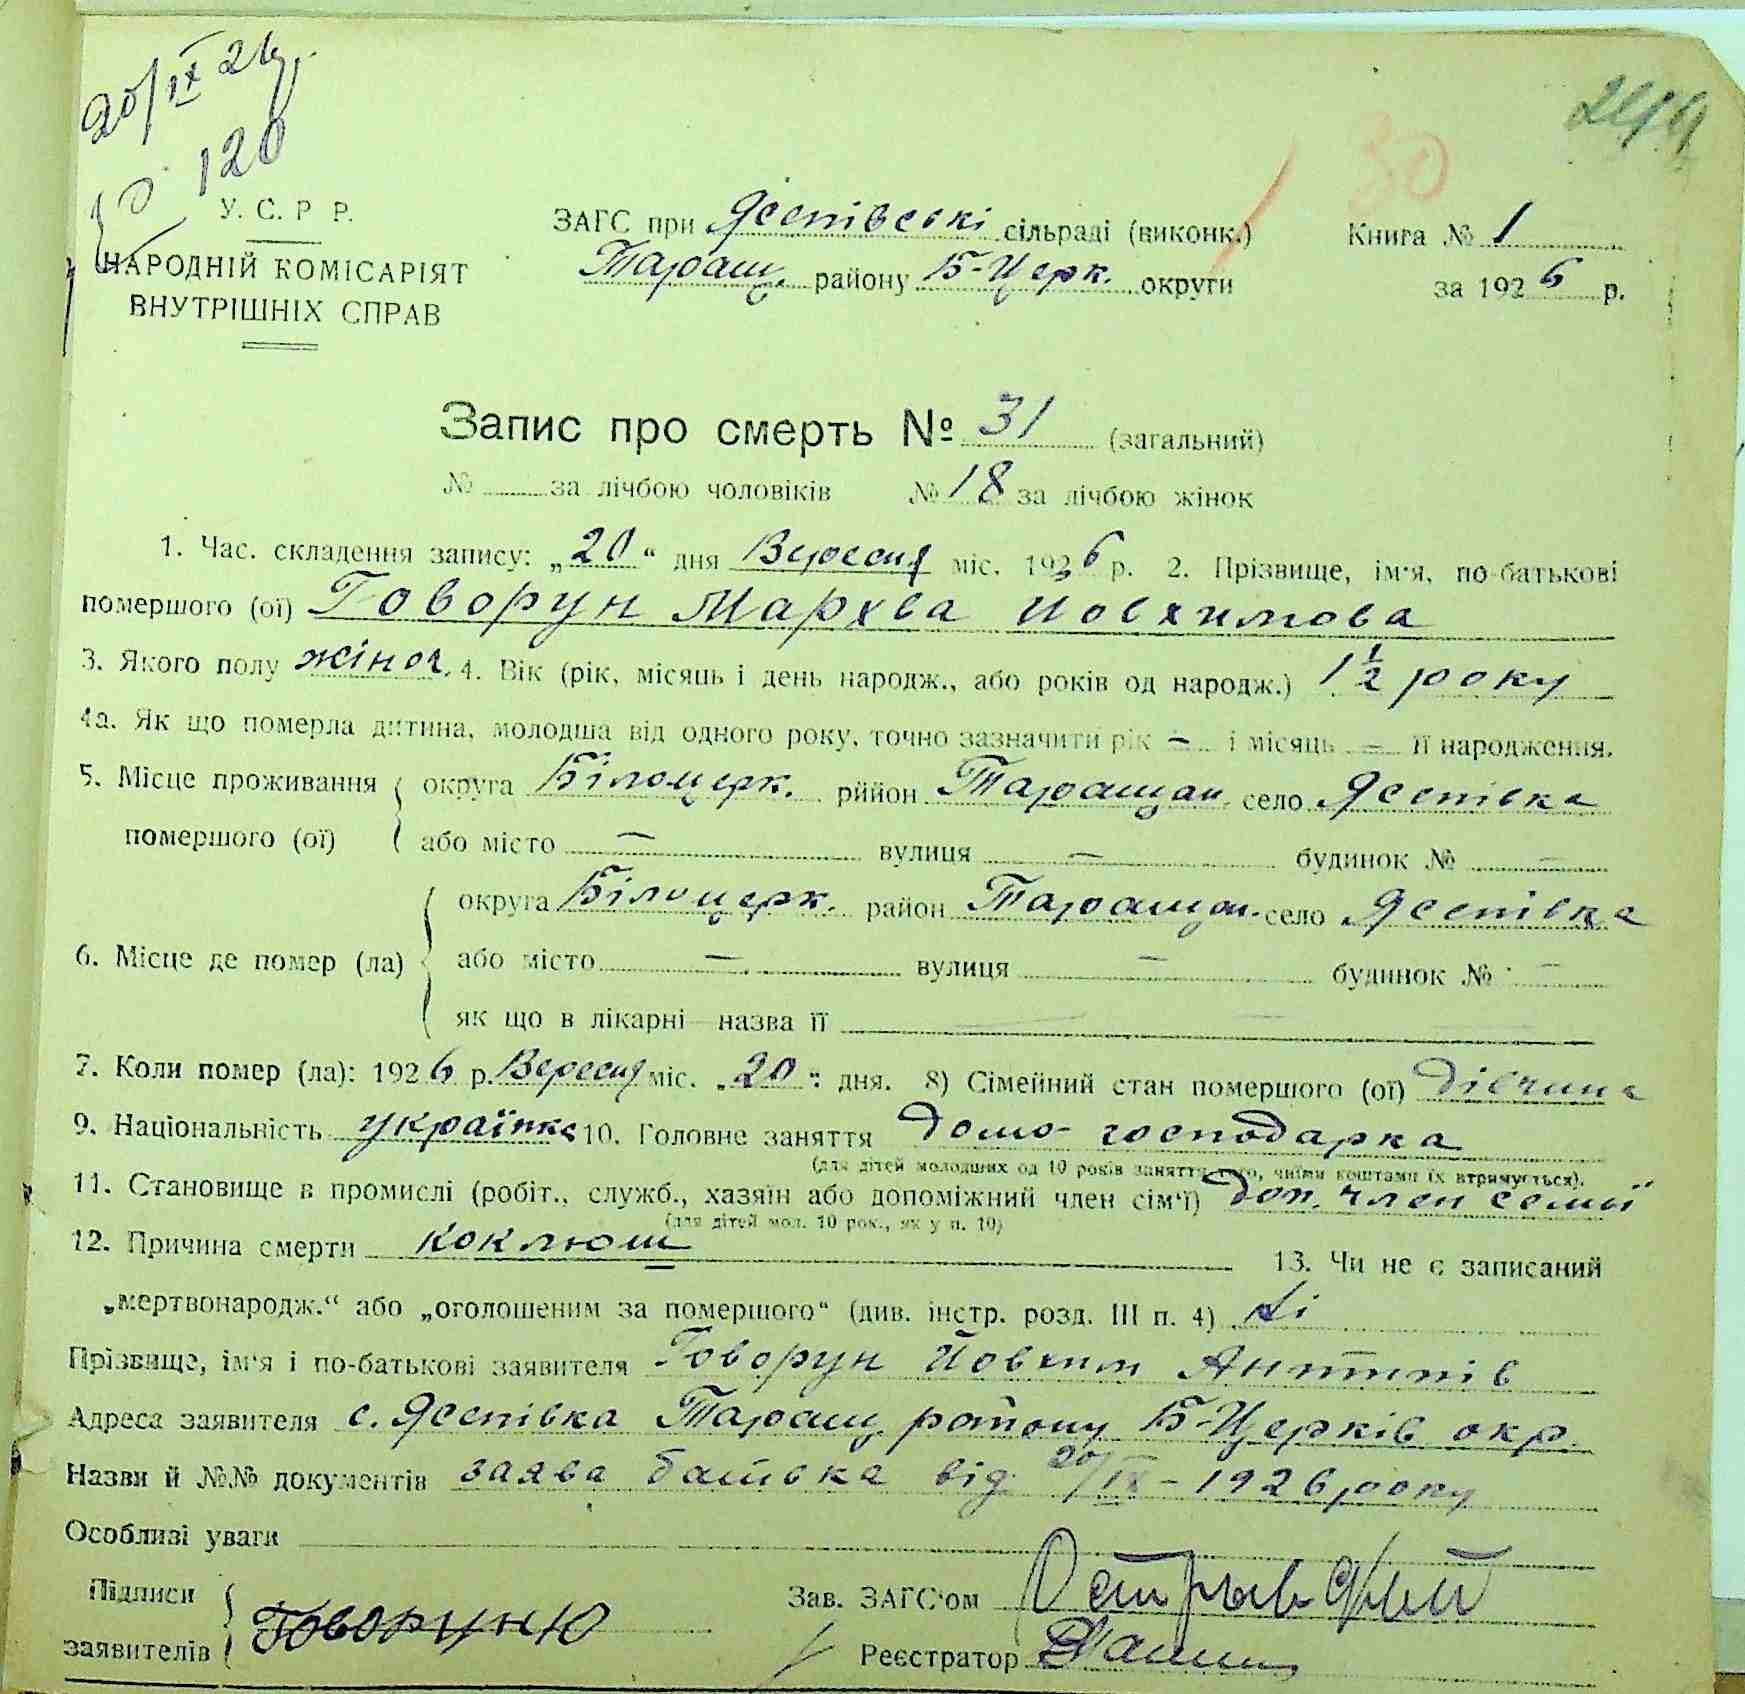 20/IX 26 р.
120
249
30
У. С. Р Р.
НАРОДНІЙ КОМІСАРІЯТ
ВНУТРІШНІХ СПРАВ
ЗАГС при Яспівські сільраді (виконк.) Книга № 1
Таращ. району Б-Церк. округи за 1926 р.
Запис про смерть № 31 (загальний)
№ за лічбою чоловіків № 18 за лічбою жінок
1. Час. складення запису: „20“ дня Вересня міс. 1926 р. 2. Прізвище, ім'я, по-батькові
помершого (ої) Говорун Мархва Йовхимова
3. Якого полу жіноч. 4. Вік (рік, місяць і день народж., або років од народж.) 1 1/2 року
4а. Як що померла дитина, молодша від одного року, точно зазначити рік – і місяць – її народження.
5. Місце проживання помершого (ої) округа Білоцерк. рийон Таращан. село Яспівка
або місто – вулиця – будинок № –
6. Місце де помер (ла) округа Білоцерк. район Таращан. село Яспівка
або місто – вулиця – будинок № –
як що в лікарні—назва її
7. Коли помер (ла): 1926 р. Вересня міс. „20“ дня. 8) Сімейний стан помершого (ої) дівчина
9. Національність українка 10. Головне заняття домо-господарка
(для дітей молодших од 10 років заняття того, чиїми коштами їх втримується).
11. Становище в промислі (робіт., служб., хазяїн або допоміжний член сім'ї) доп. член семьї
(для дітей мол. 10 рок., як у п. 10)
12. Причина смерти коклюш 13. Чи не є записаний
„мертвонародж.“ або „оголошеним за помершого“ (див. інстр. розд. III п. 4) Ні
Прізвище, ім'я і по-батькові заявителя Говорун Йовхим Антипів
Адреса заявителя с. Яспівка Таращ. району Б-Церків окр.
Назви й №№ документів заява батька від 20/IX – 1926 року
Особлизі уваги
Підписи
заявителів Говорун Ю
Зав. ЗАГС'ом
Реєстратор